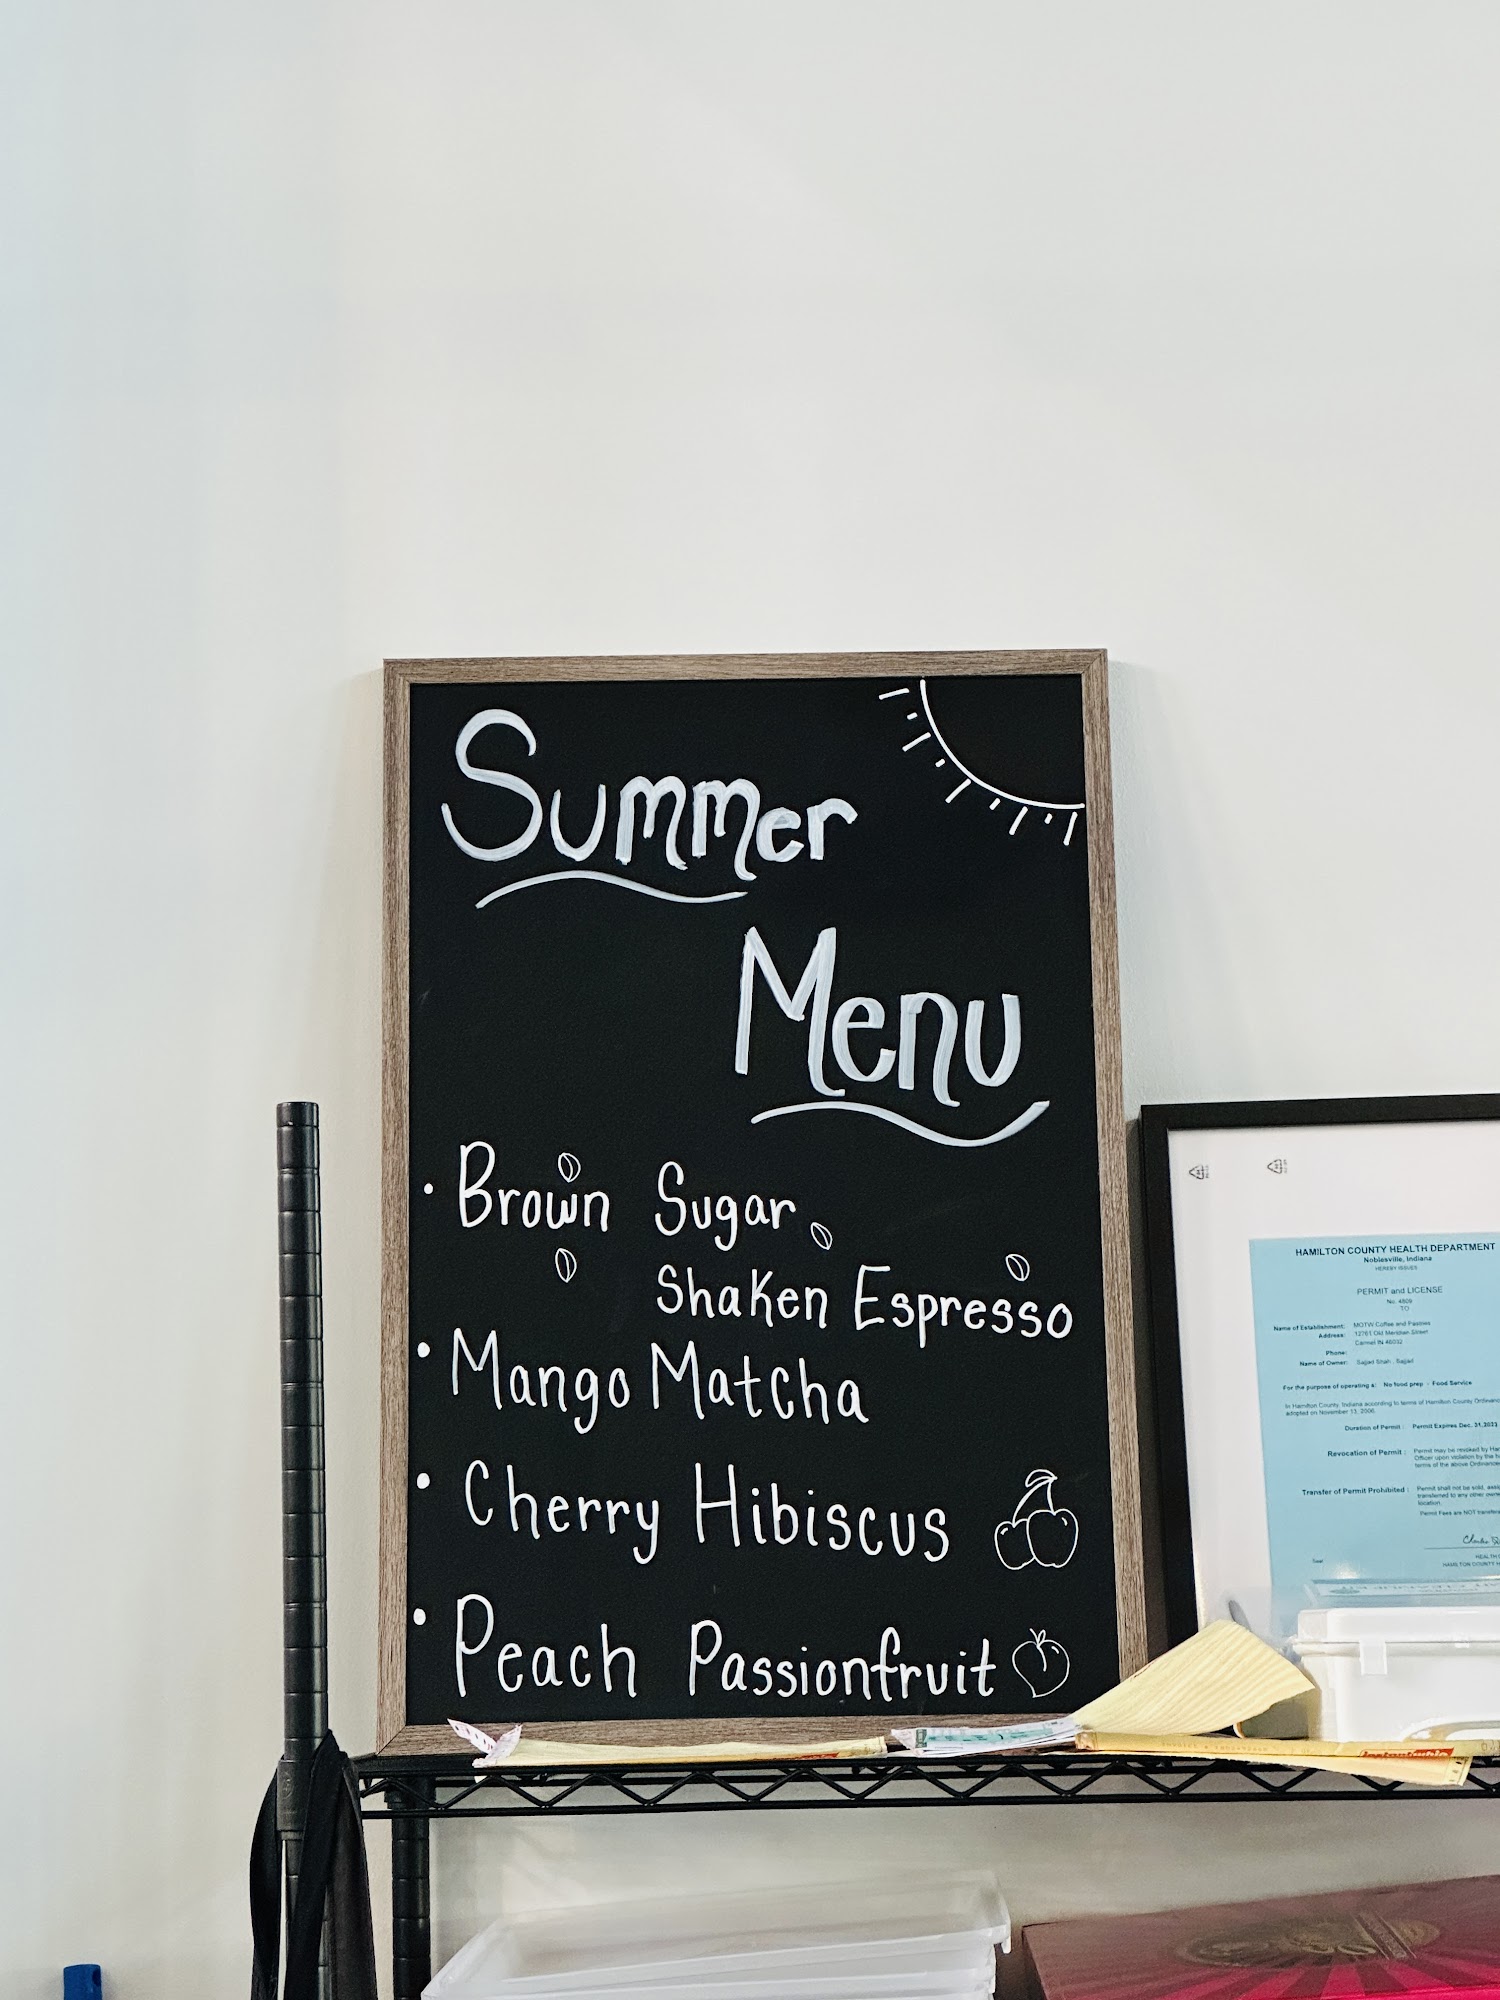 Summer
Menu
• Brown Sugar
Shaken Espresso
• Mango Matcha
• Cherry Hibiscus
• Peach Passionfruit
HAMILTON COUNTY HEALTH DEPARTMENT
Noblesville, Indiana
HEREBY ISSUES
PERMIT and LICENSE
No. 4809
TO
Name of Establishment: MOTW Coffee and Pastries
Address: 12761 Old Meridian Street
Carmel IN 46032
Phone:
Name of Owner: Sajjad Shah
For the purpose of operating a: No food prep - Food Service
In Hamilton County, Indiana according to terms of Hamilton County
adopted on November 13, 2006.
Duration of Permit: Permit Expires Dec. 31,
Revocation of Permit: Permit may be revoked by
Officer upon violation by the
terms of the above
Transfer of Permit Prohibited: Permit shall not be sold,
transferred to any other
location.
Permit Fees are NOT